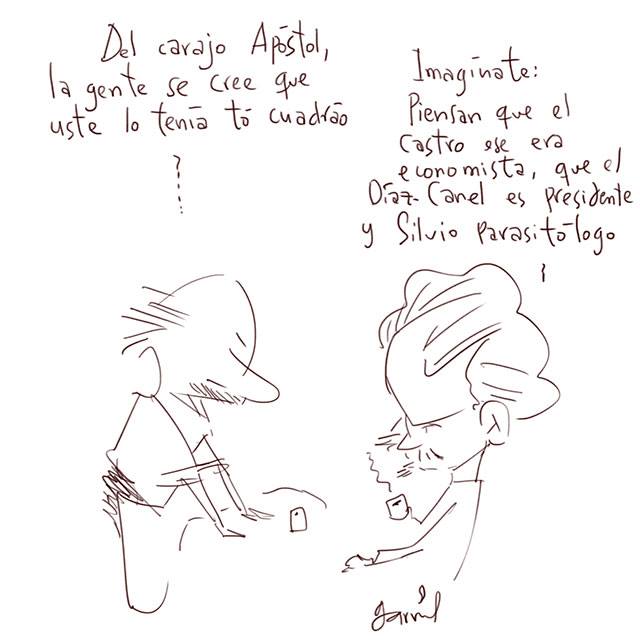 Del carajo Apóstol,
la gente se cree que
uste lo tenía tó cuadrao
Imagínate:
Piensan que el
Castro ese era
economista, que el
Díaz-Canel es presidente
y Silvio parasitólogo